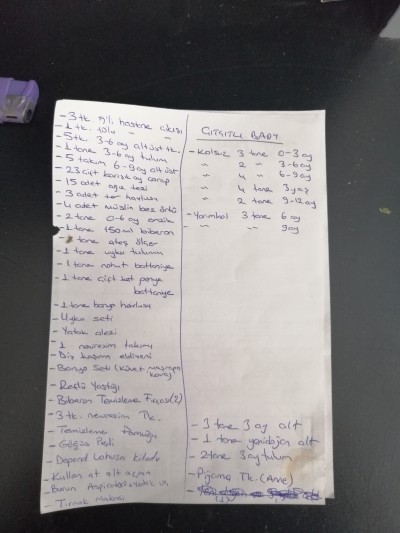 - 3 tk. 5'li hastane çıkışı
- 1 tk. 10lu " "
- 5tk. 3-6 ay alt üst tk.
- 1 tane 3-6 ay tulum
- 5 takım 6-9 ay alt üst
- 23 çift karışık ay çorap
- 15 adet ağız bezi
- 3 adet ter havlusu
- 4 adet müslin bez örtü
- 2 tane 0-6 ay emzik
- 1 tane 150 ml biberon
- 1 tane ateş ölçer
- 1 tane uyku tulumu
- 1 tane nohut battaniye
- 1 tane çift kat penye
battaniye
- 1 tane banyo havlusu
- Uyku seti
- Yatak alezi
- 1 nevresim takımı
- Diş kaşıma eldiveni
- Banyo Seti (küvet, maşrapa
- Reflü Yastığı
- Biberon Temizleme Fırçası (2)
- 3 tk. nevresim Tk.
- Temizleme Pamuğu
- Göğüs Pedi
- Depend Lohusa Külodu
- Kullan at alt açma
- Burun Aspiratörü
- Tırnak Makası
ÇITÇITLI BADY
- Kolsuz 3 tane 0-3 ay
" 2 " 3-6 ay
" 4 " 6-9 ay
" 4 tane 3 ay
" 2 tane 9-12 ay
- Yarımkol 3 tane 6 ay
- " " 9 ay
- 3 tane 3 ay alt
- 1 tane yenidoğan alt
- 2 tane 3 ay tulum
- Pijama Tk. (Anne)